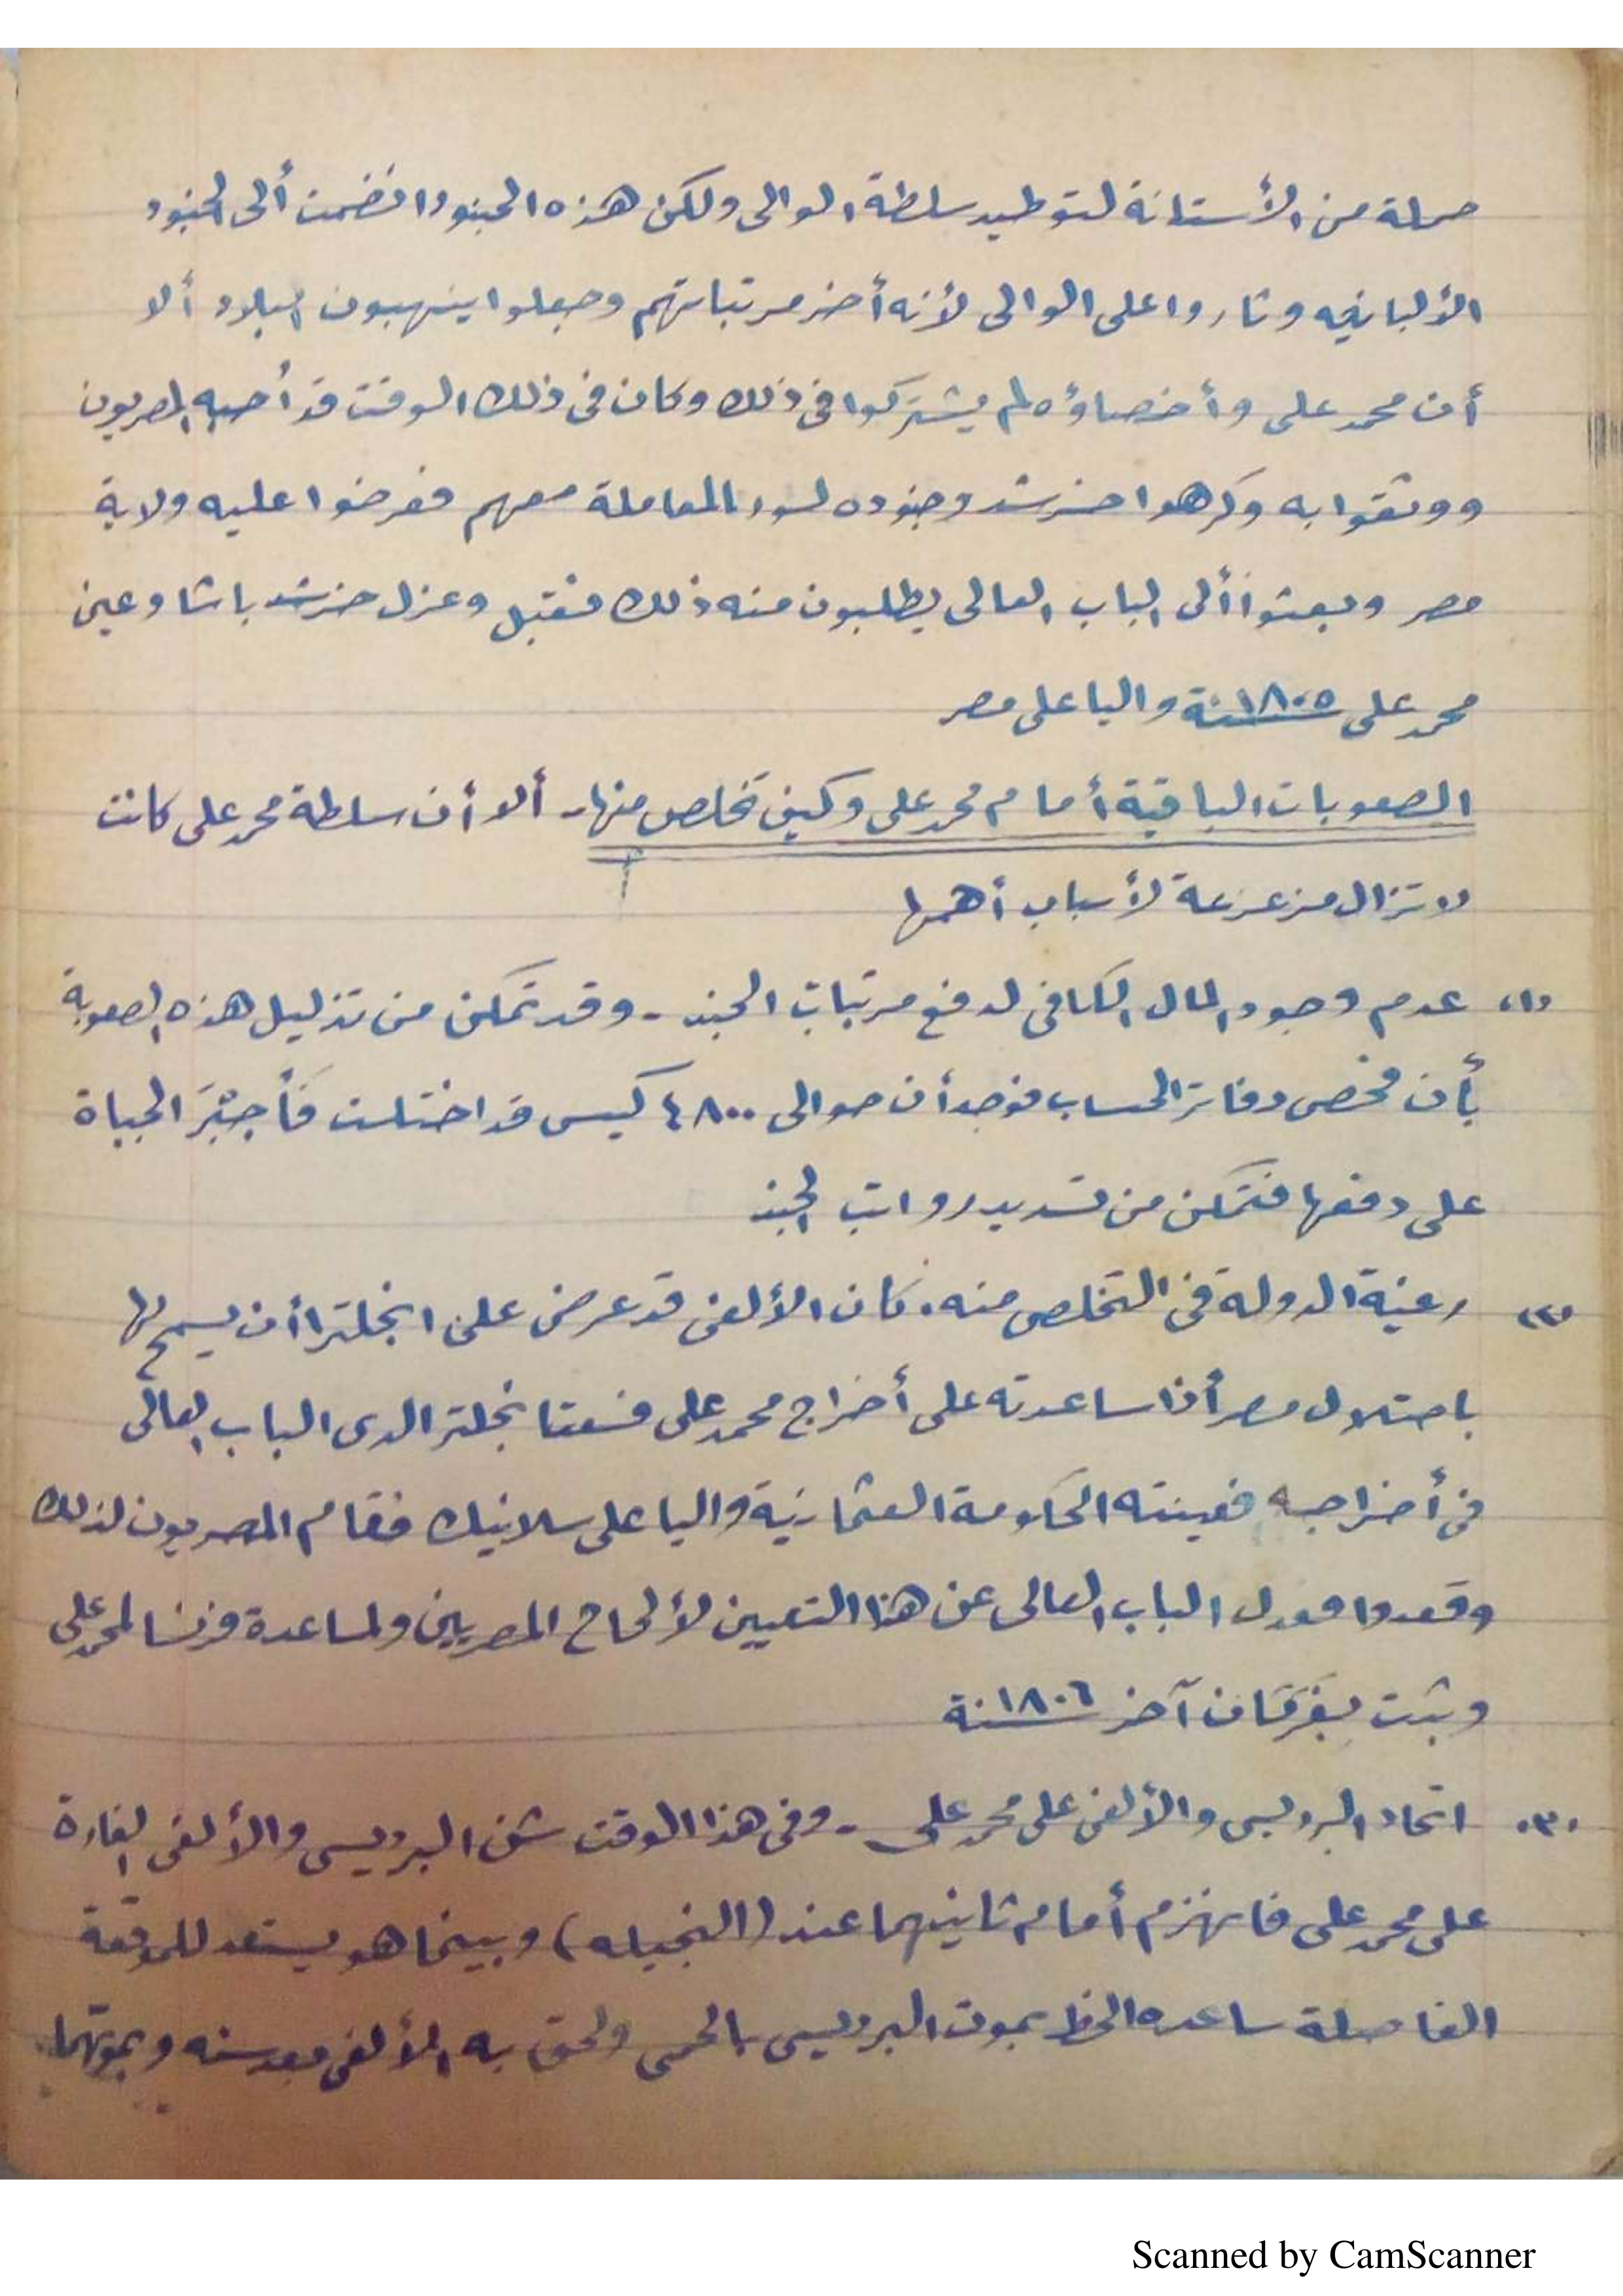 حملة من الأستانة لتوطيد سلطة الوالى ولكن هذه الجنود انضمت ألى الجنود
الألبانيه وثاروا على الوالى لأنه أخر مرتباتهم وجعلوا ينهبون البلاد ألا
أن محمد على وأخصاؤه لم يشتركوا فى ذلك وكان فى ذلك الوقت قد أحبه المصريون
ووثقوا به وكرهوا خرشد وجنوده لسوء المعاملة معهم ففرضوا عليه ولاية
مصر وبعثوا ألى الباب العالى يطلبون منه ذلك فقبل وعزل خرشد باشا وعين
محمد على سنة ١٨٠٥ واليا على مصر
الصعوبات الباقية أمام محمد على وكيف تخلص منها - ألا أن سلطة محمد على كانت
لا تزال مزعزعة لأسباب أهمها
(١) عدم وجود المال الكافى لدفع مرتبات الجند - وقد تمكن من تذليل هذه الصعوبة
بأن فحص دفاتر الحساب فوجد أن حوالى ٤٨٠٠ كيس قد اختلست فأجبر الجباة
على دفعها فتمكن من تسديد رواتب الجند
(٢) رغبة الدولة فى التخلص منه. كان الألفى قد عرض على انجلترا أن يسمح لها
باحتلال مصر أذا ساعدته على أخراج محمد على فسعت انجلترا لدى الباب العالى
فى أخراجه فعينته الحكومة العثمانية واليا على سلانيك فقام المصريون لذلك
وقعدوا فعدل الباب العالى عن هذا التعيين لألحاح المصريين ولمساعدة فرنسا لمحمد على
وثبت بفرمان آخر سنة ١٨٠٦
(٣) اتحاد البرديسى والألفى على محمد على - وفى هذا الوقت شن البرديسى والألفى الغارة
على محمد على فانهزم أمام ثانيهما عند (النجيله) وبينما هو يستعد للموقعة
الفاصلة ساعده الحظ بموت البرديسى بالحمى ولحق به الألفى بعد سنه وبموتهما
Scanned by CamScanner